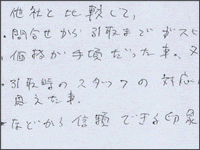 他社と比較して、
・問合せから引取までがスピ
価格が手頃だった事、又
・引取時のスタッフの対応
思えた事.
・などから信頼できる印象